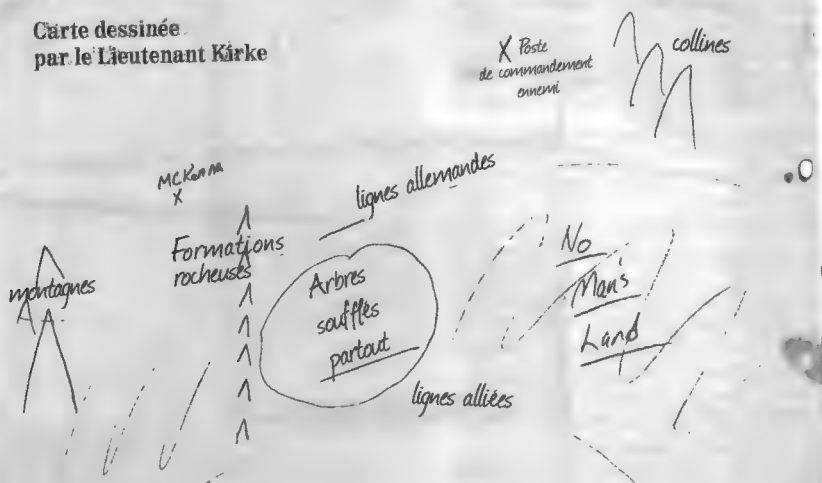 Carte dessinée
par le Lieutenant Kirke
X Poste
de commandement
ennemi
collines
McKenna
X
lignes allemandes
Formations
rocheuses
montagnes
Arbres
soufflés
partout
No
Man's
Land
lignes alliées